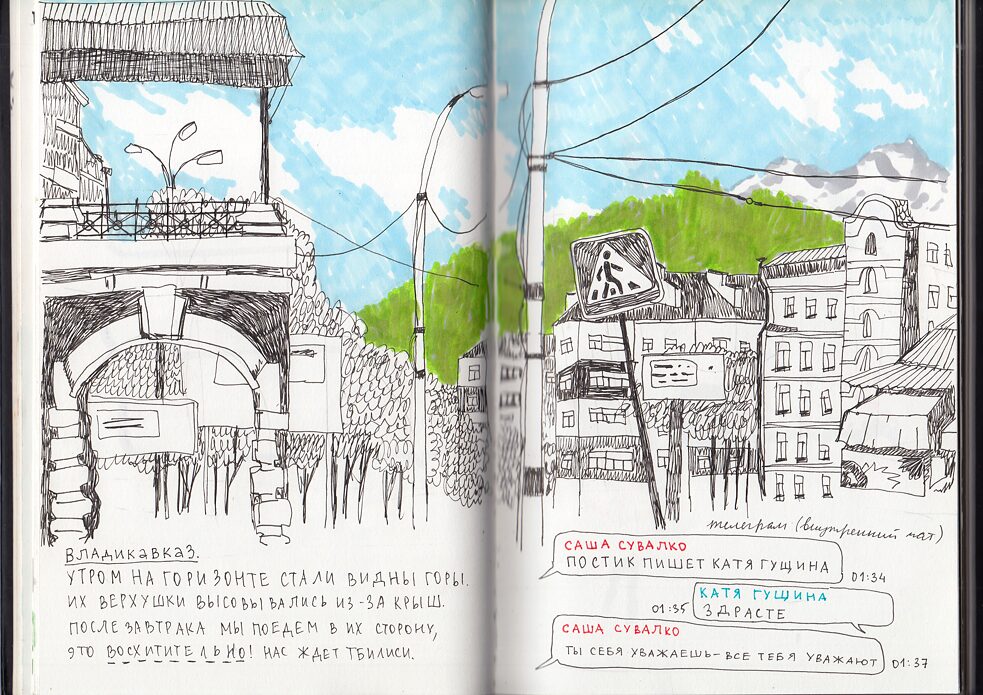 ВЛАДИКАВКАЗ.
УТРОМ НА ГОРИЗОНТЕ СТАЛИ ВИДНЫ ГОРЫ.
ИХ ВЕРХУШКИ ВЫСОВЫВАЛИСЬ ИЗ-ЗА КРЫШ.
ПОСЛЕ ЗАВТРАКА МЫ ПОЕДЕМ В ИХ СТОРОНУ,
ЭТО ВОСХИТИТЕЛЬНО! НАС ЖДЕТ ТБИЛИСИ.
телеграм (внутренний чат)
САША СУВАЛКО
ПОСТИК ПИШЕТ КАТЯ ГУЩИНА
01:34
КАТЯ ГУЩИНА
ЗДРАСТЕ
01:35
САША СУВАЛКО
ТЫ СЕБЯ УВАЖАЕШЬ - ВСЕ ТЕБЯ УВАЖАЮТ
01:37